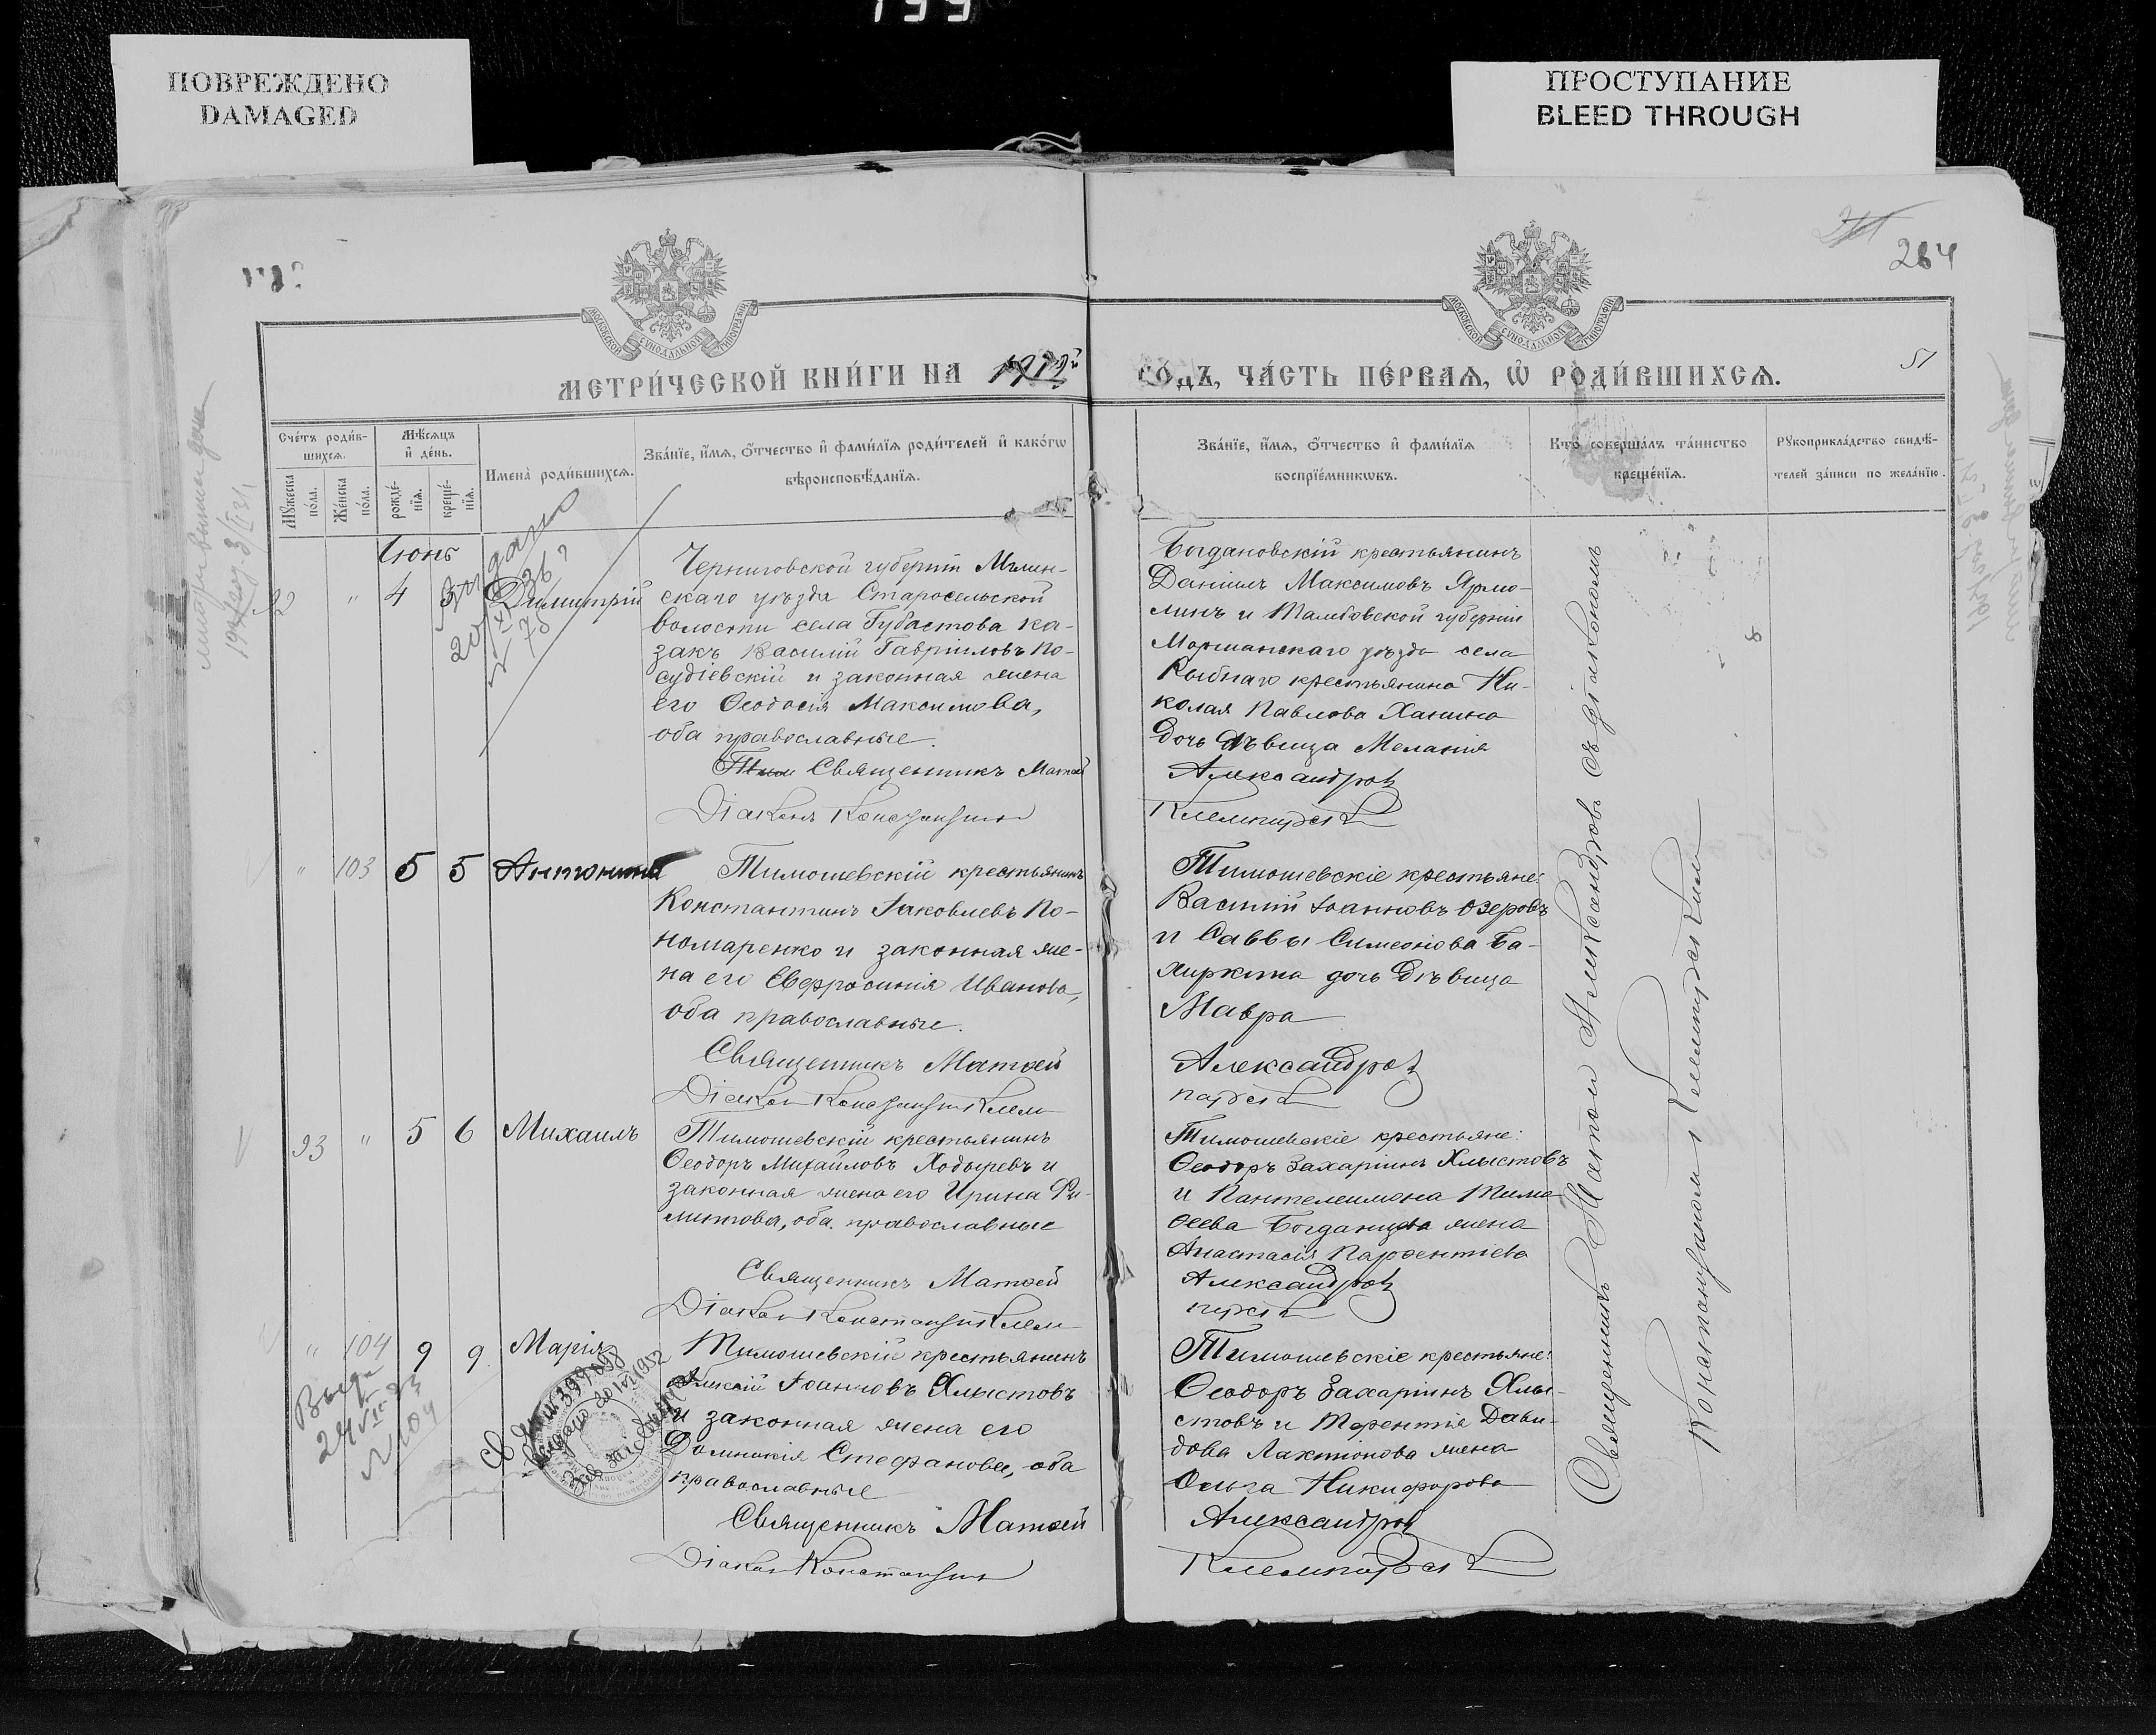 199
ПОВРЕЖДЕНО
DAMAGED
ПРОСТУПАНИЕ
BLEED THROUGH
264
51
МОСКОВСКОЙ СѴНОДАЛЬНОЙ ТИПОГРАФІИ
МОСКОВСКОЙ СѴНОДАЛЬНОЙ ТИПОГРАФІИ
МЕТРИ́ЧЕСКОЙ КНИ́ГИ НА 1912й ГО́ДЪ, ЧА́СТЬ ПЕ́РВАѦ, Ѡ҆ РОДИ́ВШИХСѦ.
Счéтъ роди́в-
шихсѧ.
Мꙋ́жеска
по́ла.
Же́нска
по́ла.
Мѣ́сѧцъ
и҆ де́нь.
рожде́-
нїѧ.
креще́-
нїѧ.
И҆мена̀ роди́вшихсѧ.
Зва́нїе, и҆́мѧ, ѻ҆́тчество и҆ фами́лїѧ роди́телей и҆ како́гѡ
вѣроисповѣ́данїѧ.
Зва́нїе, и҆́мѧ, ѻ҆́тчество и҆ фами́лїѧ
воспрїе́мникѡвъ.
Кто̀ соверша́лъ та́инство
креще́нїѧ.
Рꙋкоприкла́дство свидѣ́-
телей за́писи по жела́нїю.
Іюнь
92 " 4 5 Димитрій
Черниговской губерніи Мглин-
скаго уѣзда Старосельской
волости села Губастова ка-
закъ Василій Гавріиловъ По-
судіевскій и законная жена
его Ѳеодосія Максимова,
оба православные.
Священникъ Матѳей
Діаконъ Константинъ
Богдановскій крестьянинъ
Даніилъ Максимовъ Ярмо-
линъ и Тамбовской губерніи
Моршанскаго уѣзда села
Рыбнаго крестьянина Ни-
колая Павлова Ханина
дочь дѣвица Меланія
Александровъ
" 103 5 5 Антонина
Тимошевскій крестьянинъ
Константинъ Іаковлевъ По-
номаренко и законная же-
на его Евфросинія Иванова,
оба православные.
Священникъ Матѳей
Діаконъ Константинъ
Тимошевскіе крестьяне:
Василій Іоанновъ Озеровъ
и Саввы Симеонова Ба-
хиркина дочь дѣвица
Мавра
Александровъ
93 " 5 6 Михаилъ
Тимошевскій крестьянинъ
Ѳеодоръ Михайловъ Ходыревъ и
законная жена его Ирина Фи-
липпова, оба православные
Священникъ Матѳей
Діаконъ Константинъ
Тимошевскіе крестьяне:
Ѳеодоръ Захаріинъ Хлыстовъ
и Пантелеимона Тимо-
ѳеева Богданцова жена
Анастасія Парѳентіева
Александровъ
" 104 9 9 Марія
Тимошевскій крестьянинъ
Іоанновъ Хлыстовъ
и законная жена его
Домникія Стефанова, оба
православные
Священникъ Матѳей
Діаконъ Константинъ
Тимошевскіе крестьяне:
Ѳеодоръ Захаріинъ Хлы-
стовъ и Терентія Дави-
дова Лактіонова жена
Ольга Никифорова
Александровъ
Священникъ Матѳей Александровъ съ діакономъ
Константиномъ